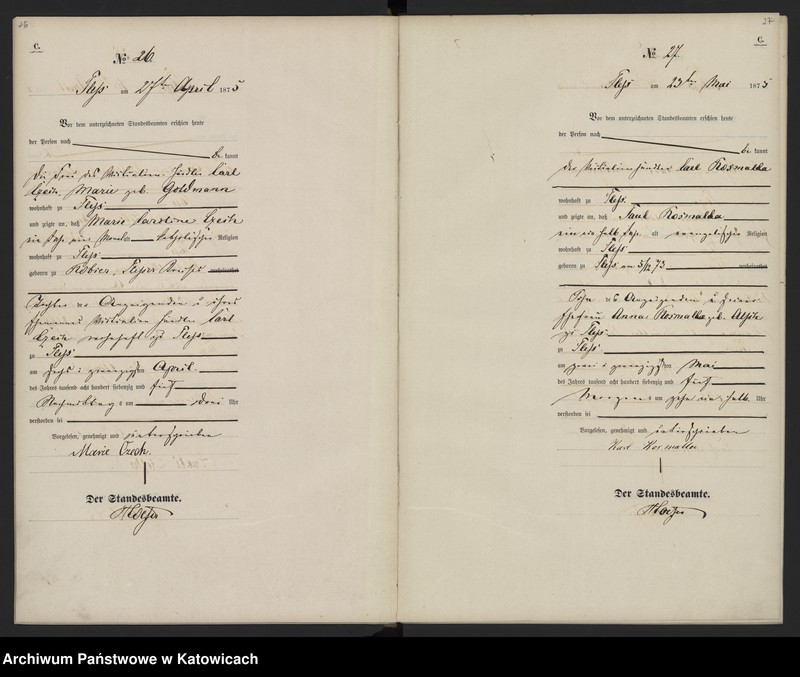 26
C.
№ 26
Pless am 27ten April 1875
Vor dem unterzeichneten Standesbeamten erschien heute
der Person nach
be kannt
die Frau des Viktualien händler Carl
Marie geb. Goldmann
wohnhaft zu Pless
und zeigte an, daß Marie Caroline
ein Jahr ein Monden katholischer Religion
wohnhaft zu Pless
geboren zu Kobier, Plesser Kreises wohnhaft
Tochter der Anzeigenden u ihres
Ehemannes Viktualien händler Carl
wohnhaft zu Pless
zu Pless
am sechs u zwanzigsten April
des Jahres tausend acht hundert siebenzig und fünf
Nachmittags um drei Uhr
verstorben sei
Vorgelesen, genehmigt und unterschrieben
Marie
Der Standesbeamte.
27
C.
№ 27.
Pless am 23ten Mai 1875
Vor dem unterzeichneten Standesbeamten erschien heute
der Person nach
be kannt
der Viktualienhändler Carl Kosmalka
wohnhaft zu Pless.
und zeigte an, daß Paul Kosmalka
ein ein halb Jahr alt evangelischer Religion
wohnhaft zu Pless
geboren zu Pless am 5/12 73
Sohn des Anzeigenden u seiner
Ehefrau Anna Kosmalka geb.
zu Pless
zu Pless
am zwei u zwanzigsten Mai
des Jahres tausend acht hundert siebenzig und fünf
Morgens um zehn ein halb Uhr
verstorben sei
Vorgelesen, genehmigt und unterschrieben
Karl Kosmalka
Der Standesbeamte.
Archiwum Państwowe w Katowicach